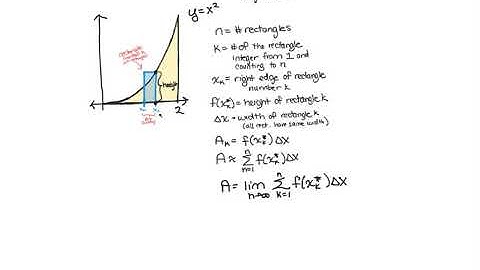 y=x²
n = # rectangles
k = # of the rectangle
integer from 1 and
counting to n
xₖ = right edge of rectangle
number k
f(xₖ*) = height of rectangle k
Δx = width of rectangle k
(all rect. have same width)
Aₖ = f(xₖ*)Δx
A ≈ ∑ₙ₌₁ⁿ f(xₖ*)Δx
A = lim n→∞ ∑ₖ₌₁ⁿ f(xₖ*)Δx
height
2